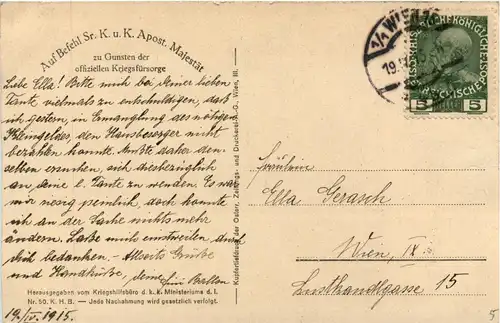 Auf Befehl Sr. K. u. K. Apost. Majestät
zu Gunsten der
offiziellen Kriegsfürsorge
Liebe Ella! Bitte mich bei Deiner lieben
Tante vielmals zu entschuldigen, daß
ich gestern, in Ermanglung des nötigen
Kleingeldes, den Hausbesorger nicht
bezahlen konnte. Mußte daher den-
selben ersuchen, sich diesbezüglich
an deine l. Tante zu wenden. Es war
mir riesig peinlich, doch konnte
ich an der Sache nichts mehr
ändern. Laße mich einstweilen
bedanken. – Allseits Grüße
und Handküße, deine
Herausgegeben vom Kriegshilfsbüro d. k. k. Ministeriums d. I.
Nr. 50. K. H. B. — Jede Nachahmung wird gesetzlich verfolgt.
19./IV. 1915.
Kupfertiefdruck der Oesterr. Zeitungs- und Druckerei-A.-G. Wien, III.
1/1 WIEN
19.
5 5
Fräulein
Ella Gerasch
Wien, IX
Lustkandlgasse 15
5